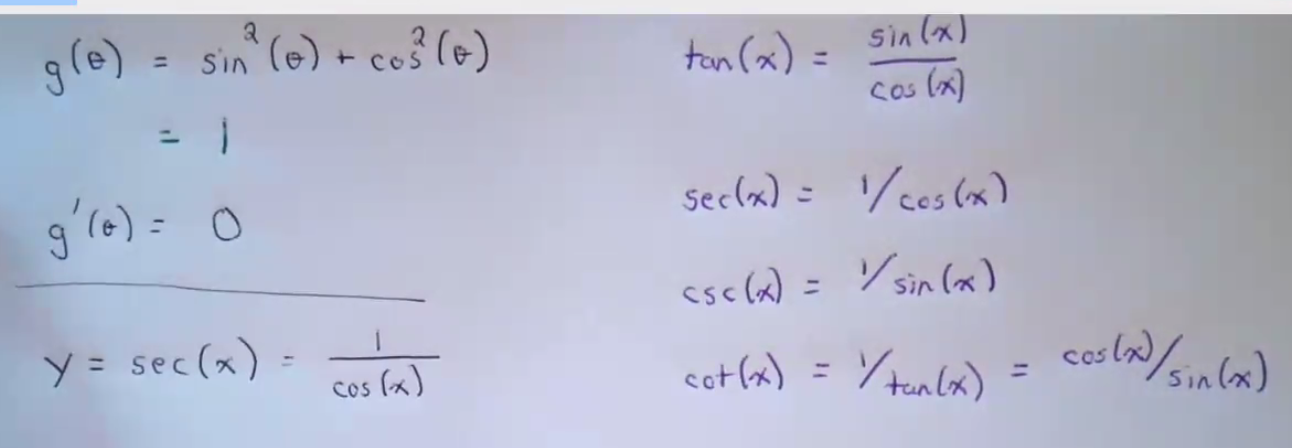 g(θ) = sin²(θ) + cos²(θ)
= 1
g'(θ) = 0
y = sec(x) = 1/cos(x)
tan(x) = sin(x)/cos(x)
sec(x) = 1/cos(x)
csc(x) = 1/sin(x)
cot(x) = 1/tan(x) = cos(x)/sin(x)